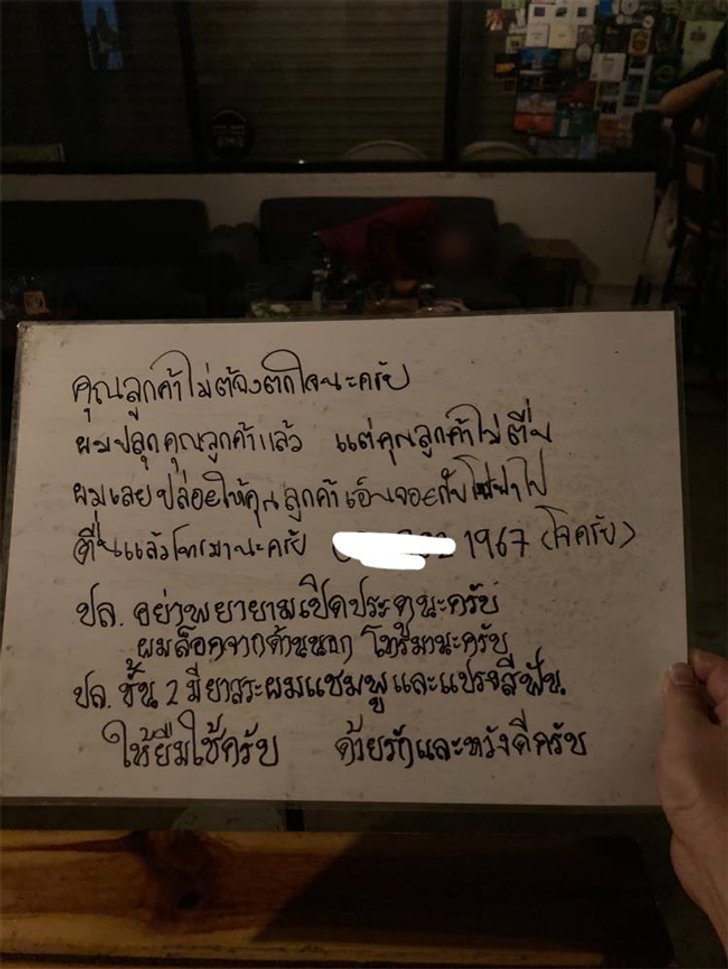 คุณลูกค้าไม่ต้องตกใจนะครับ
ผมปลุกคุณลูกค้าแล้ว แต่คุณลูกค้าไม่ตื่น
ผมเลยปล่อยให้คุณลูกค้าเอ็นจอยกับโซฟาไป
ตื่นแล้วโทรมานะครับ 1967 (โจครับ)
ปล. อย่าพยายามเปิดประตูนะครับ
ผมล็อคจากด้านนอก โทรมานะครับ
ปล. ชั้น 2 มียาสระผมแชมพูและแปรงสีฟัน
ให้ยืมใช้ครับ ด้วยรักและหวังดีครับ